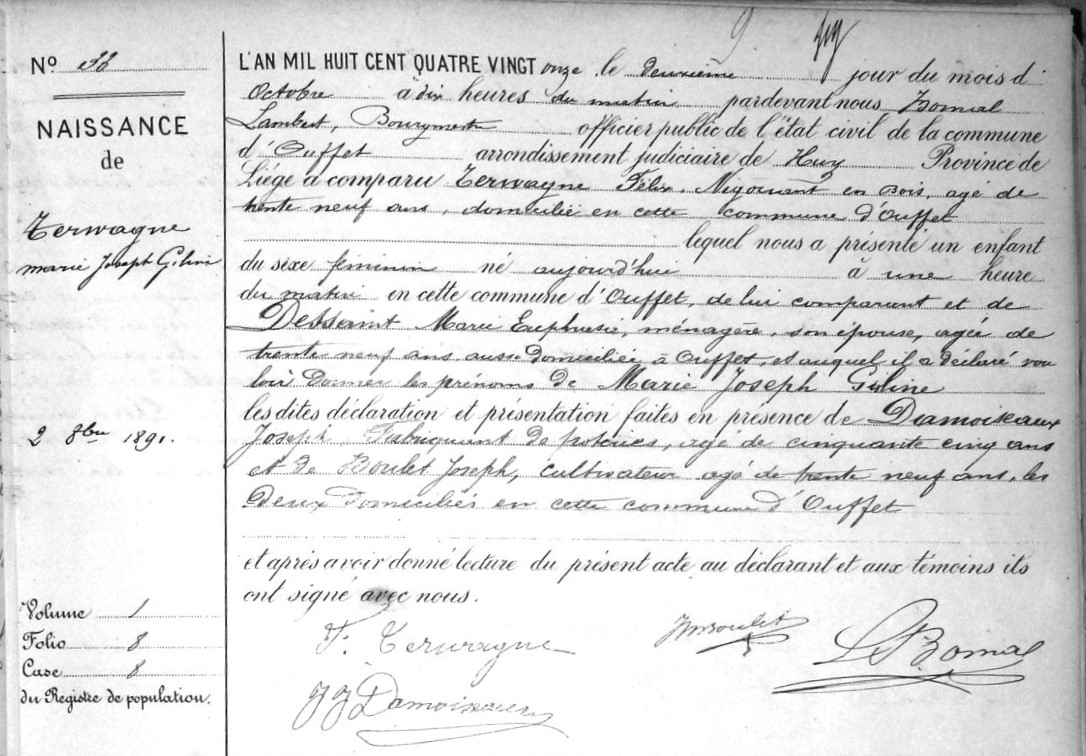 9
No 33
NAISSANCE
de
Terwagne
marie Joseph G.
2 8bre 1891.
Volume 1
Folio 8
Case 8
du Registre de population.
L'AN MIL HUIT CENT QUATRE VINGT onze le deuxième jour du mois d'
Octobre à dix heures du matin pardevant nous Bomal
Lambert, Bourgmestre officier public de l'état civil de la commune
d'Ouffet arrondissement judiciaire de Huy Province de
Liége a comparu Terwagne Félix, Négociant en bois, agé de
trente neuf ans, domicilié en cette commune d'Ouffet
lequel nous a présenté un enfant
du sixe féminin né aujourd'hui à une heure
du matin en cette commune d'Ouffet, de lui comparant et de
Dessaint Marie Euphrasie, ménagère, son épouse, agée de
trente neuf ans aussi domiciliée à Ouffet, et auquel il a déclaré vou
loir donner les prénoms de Marie Joseph
les dites déclaration et présentation faites en présence de Damoiseaux
Joseph, Fabriquant de poteries, agé de cinquante cinq ans
et de Boulet Joseph, cultivateur agé de trente neuf ans, les
Deux domiciliés en cette commune d'Ouffet
et après avoir donné lecture du présent acte au déclarant et aux témoins ils
ont signé avec nous.
F. Terwagne
Boulet
L Bomal
JJ Damoiseaux